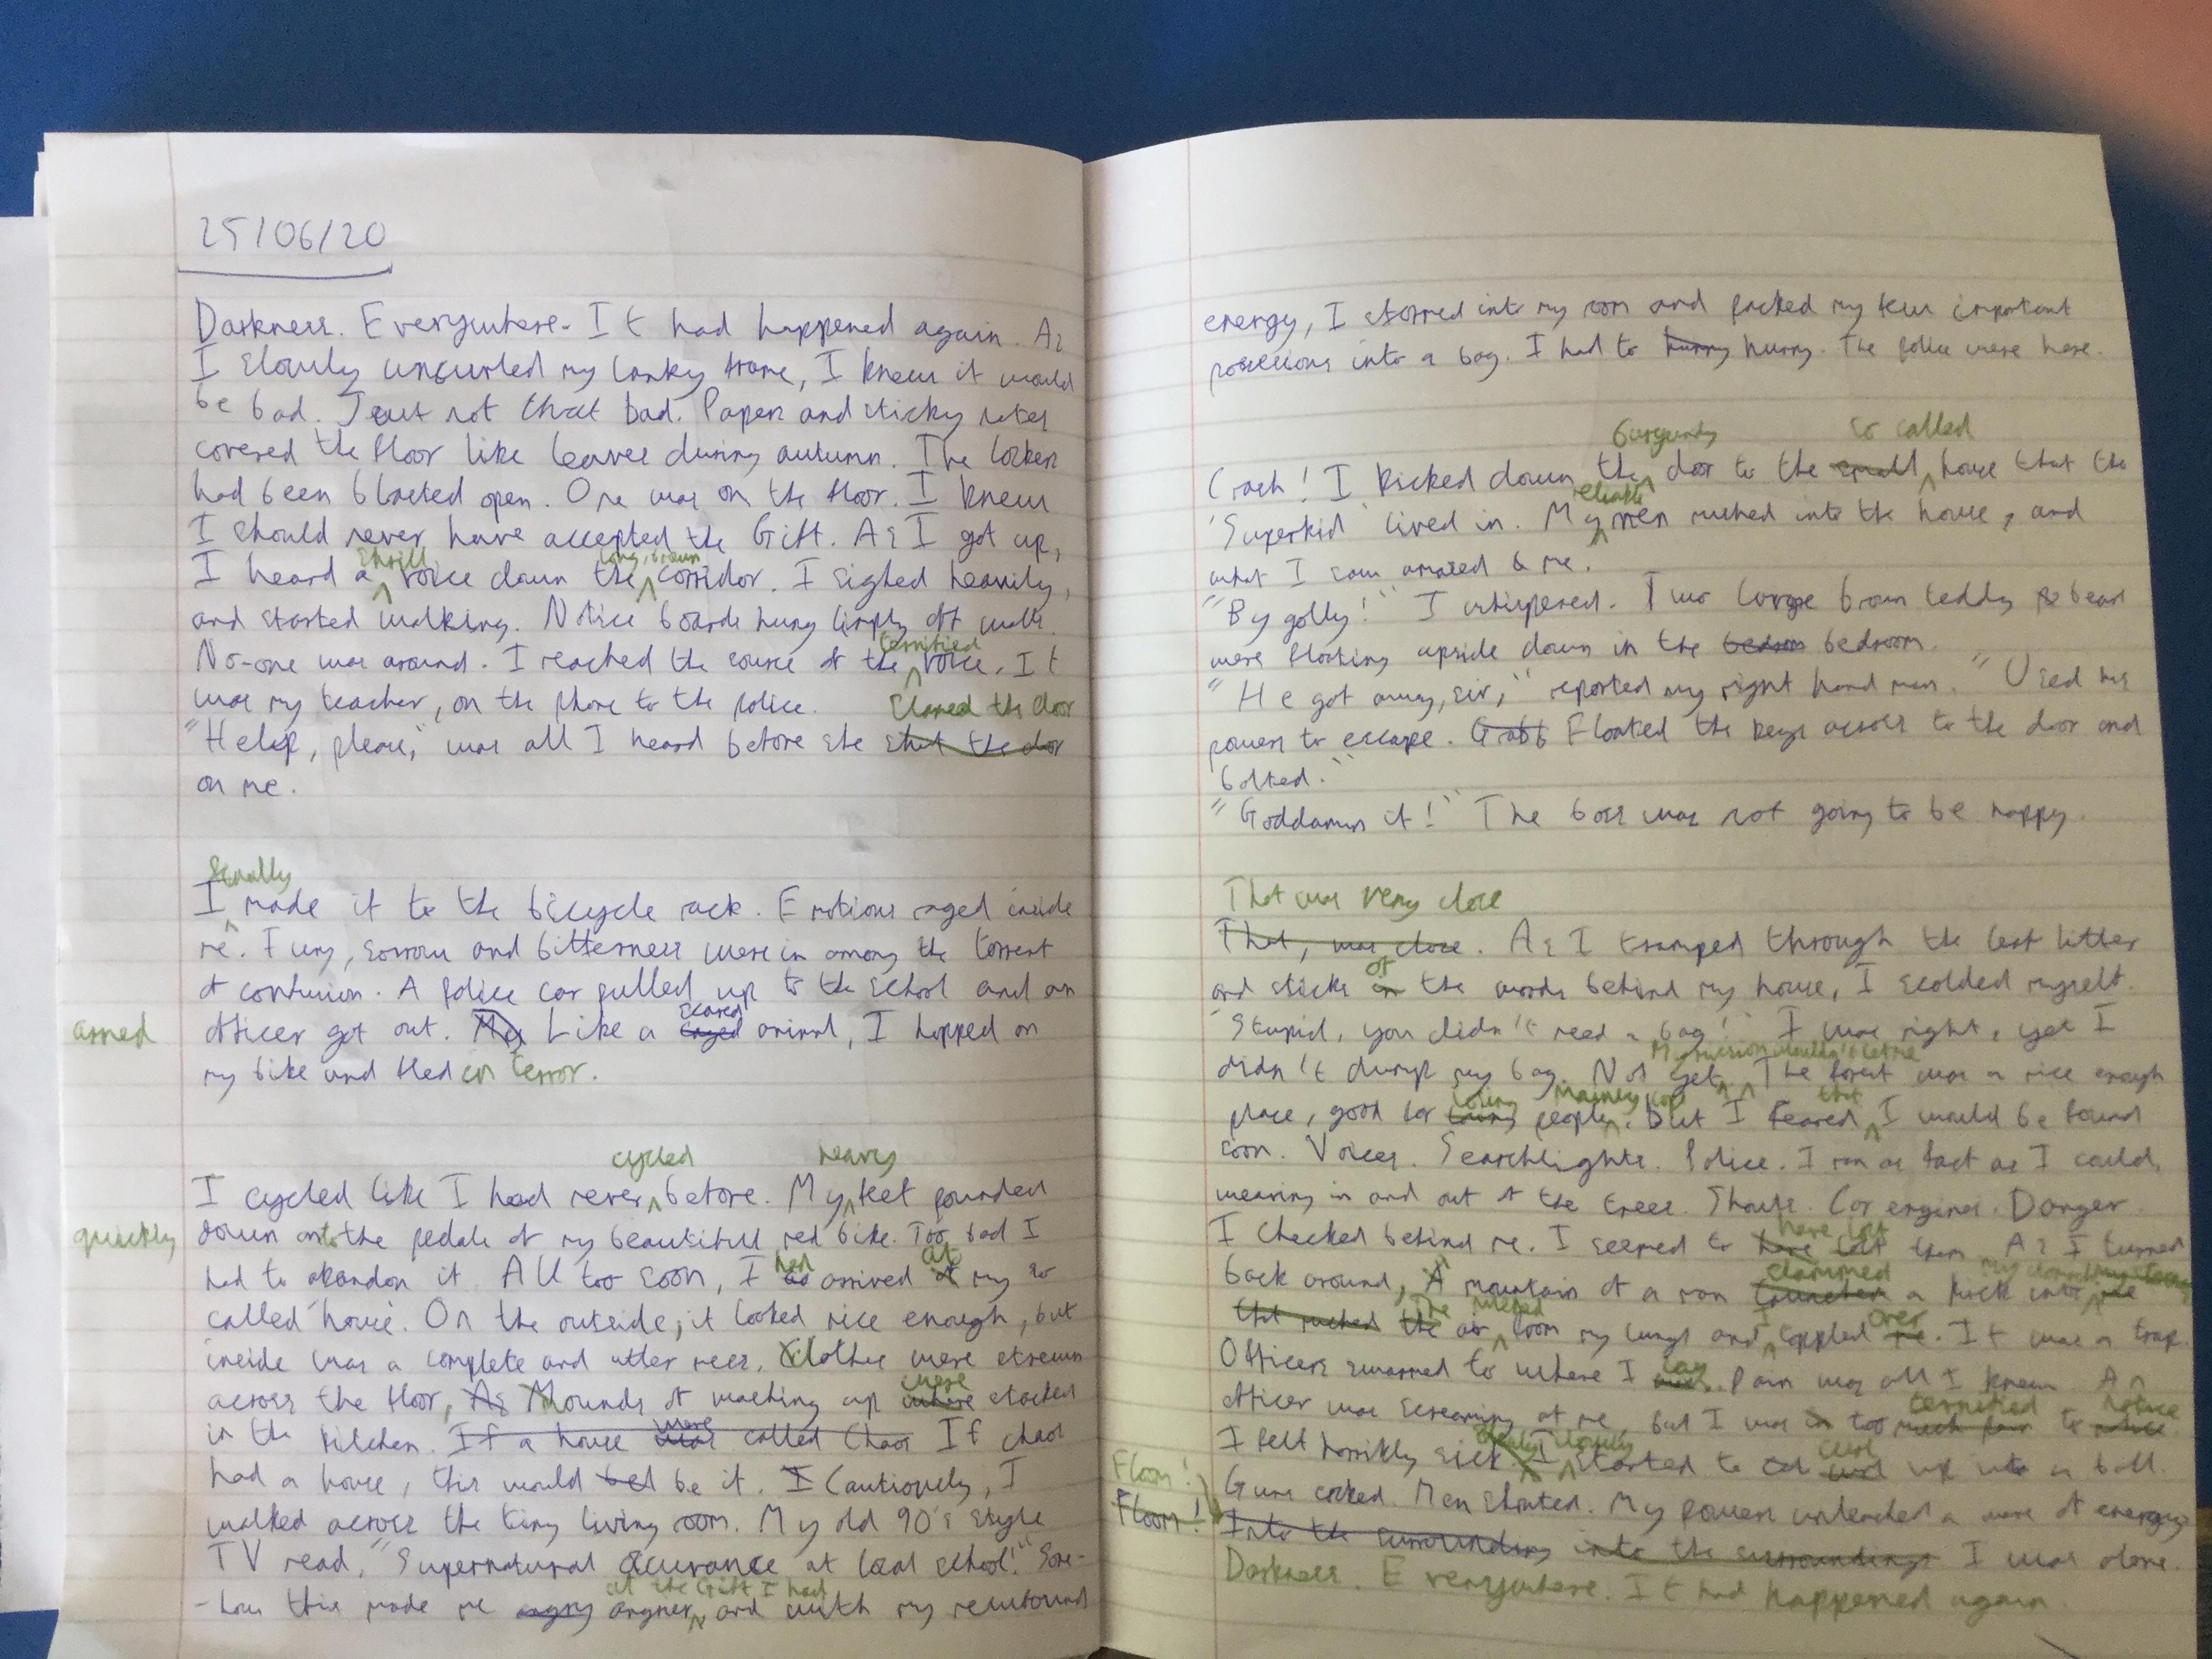 25/06/20
Darkness. Everywhere. It had happened again. As
I slowly uncurled my lanky frame, I knew it would
be bad. Just not that bad. Papers and sticky notes
covered the floor like leaves during autumn. The lockers
had been blasted open. One was on the floor. I knew
I should never have accepted the Gift. As I got up,
shrill long, brown
I heard a voice down the corridor. I sighed heavily,
and started walking. Notice boards hung limply off walls.
terrified
No-one was around. I reached the source of the voice. It
was my teacher, on the phone to the police.
slamed the door
"Help, please," was all I heard before she shut the door
on me.
finally
I made it to the bicycle rack. Emotions raged inside
me. Fury, sorrow and bitterness were in among the torrent
of confusion. A police car pulled up to the school and an
scared
armed officer got out. My Like a caged animal, I hopped on
my bike and fled in terror.
cycled heavy
I cycled like I had never before. My feet pounded
quickly down onto the pedals of my beautiful red bike. Too bad I
had at
had to abandon it. All too soon, I arrived my so
called 'house'. On the outside, it looked nice enough, but
inside was a complete and utter mess. Clothes were strewn
were
across the floor, As Mounds of washing up where stacked
were
in the kitchen. If a house was called Chaos If chaos
had a house, this would be it. I Cautiously, I
walked across the tiny living room. My old 90's style
TV read, "Supernatural occurance at local school!" Some-
at the Gift I had
-how this made me angry angrier, and with my newfound
energy, I stormed into my room and packed my few important
possessions into a bag. I had to hurry hurry. The police were here.
burgundy so called
Crash! I kicked down the door to the small house that the
reliable
'Superkid' lived in. My men rushed into the house, and
what I saw amazed me.
"By golly!" I whispered. Two large brown teddy bears
were floating upside down in the bedroom bedroom.
"He got away, sir," reported my right hand man. "Used his
powers to escape. Grabb Floated the keys across to the door and
bolted."
"Goddamn it!" The boss was not going to be happy.
That was very close
That, was close. As I tramped through the leaf litter
of
and sticks in the woods behind my house, I scolded myself.
"Stupid, you didn't need a bag!" I was right, yet I
My mission wouldn't let me
didn't dump my bag. Not yet. The forest was a nice enough
losing mainly cops that
place, good for people. But I feared I would be found
soon. Voices. Searchlights. Police. I ran as fast as I could,
weaving in and out of the trees. Shouts. Car engines. Danger.
have lost
I checked behind me. I seemed to have lost them. As I turned
slammed
back around, A mountain of a man launched a kick into me
The rushed I over
that rushed the air from my lungs and toppled me. It was a trap.
lay
Officers swarmed to where I was. Pain was all I knew. An
terrified notice
officer was screaming at me, but I was in too much pain to notice.
slowly curl
I felt horribly sick. I started to curl up into a ball.
Floom!
Guns cocked. Men shouted. My powers unleashed a wave of energy
Floom! Into the surrounding into the surroundings I was alone.
Darkness. Everywhere. It had happened again.